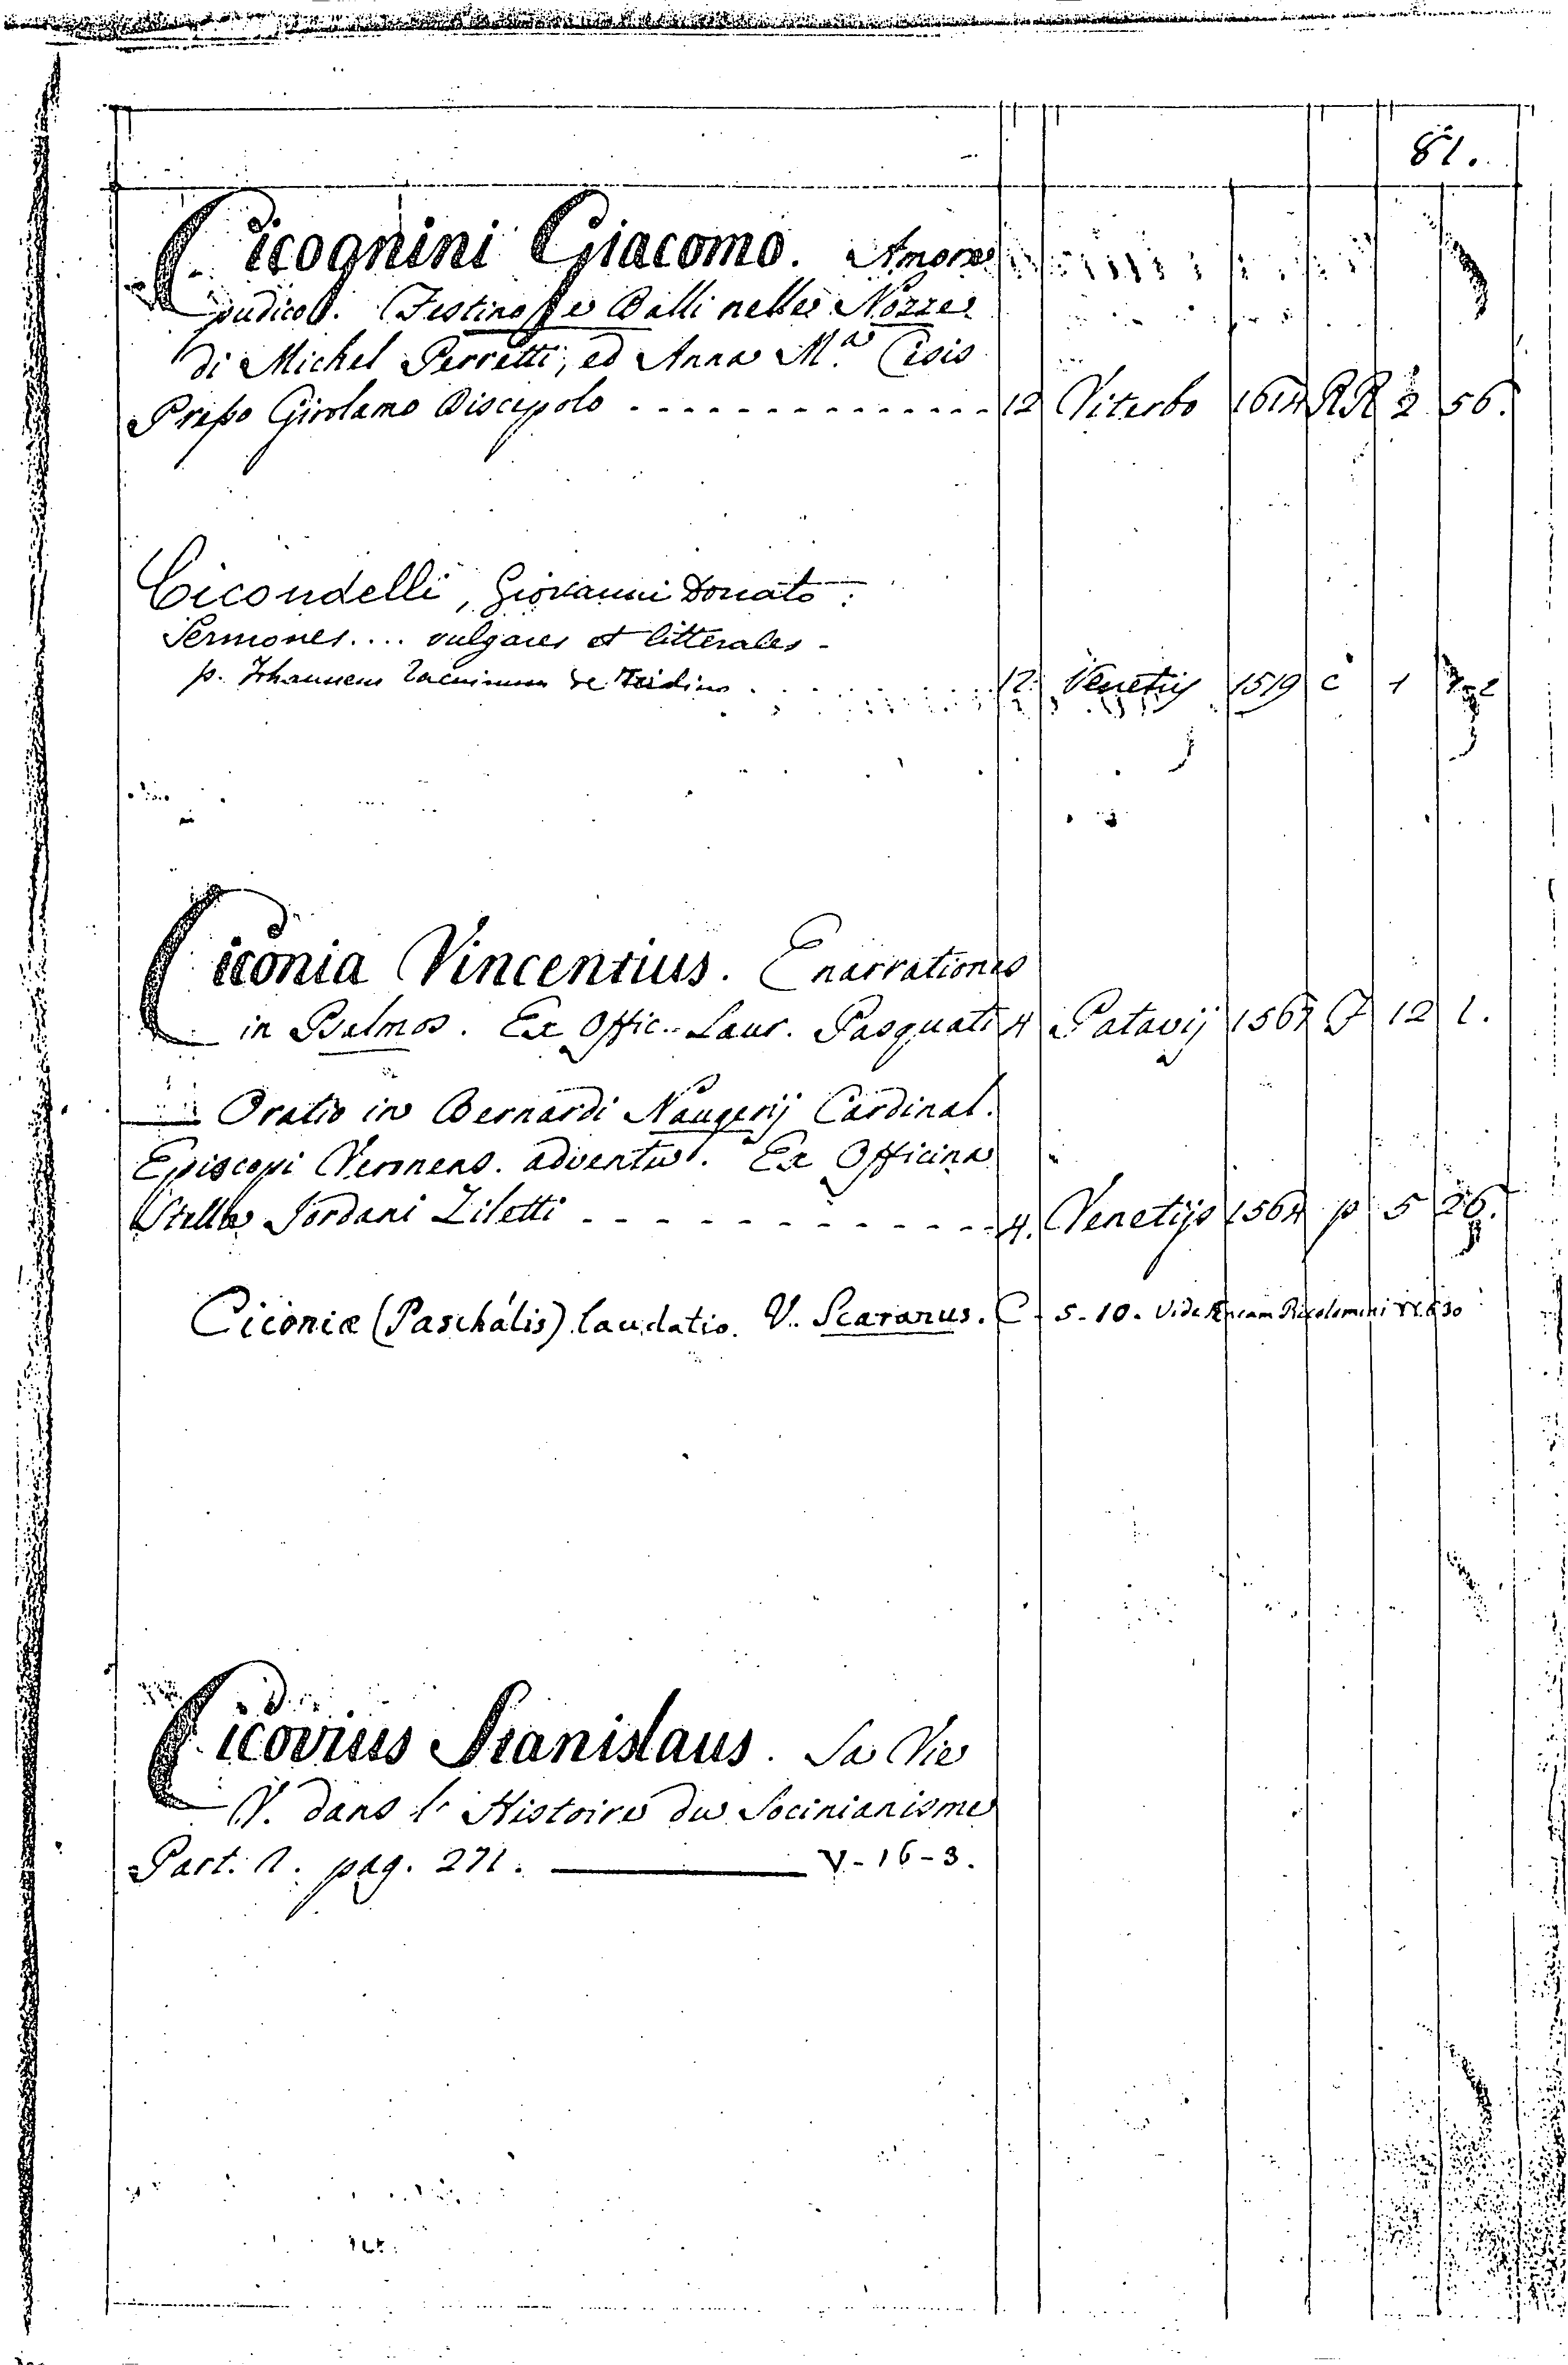 81.
Cicognini Giacomo. Amore
pudico. Festino, e Balli nelle Nozze
di Michel Perretti, ed Anna M.ª Cesis
Presso Girolamo Discepolo - - - - - - - - - - - - - 12 Viterbo 1614 RR 2 56.
Cicondelli, Giovanni Donato:
Sermones.... vulgares et litterales -
p. Johannem Tacuinum de Tridino . . . . . . 12. Venetiis 1519 c 1
Ciconia Vincentius. Enarrationes
in Psalmos. Ex Offic. Laur. Pasquati 4 Patavij 1567 J 12 1.
—— Oratio in Bernardi Naugerij Cardinal.
Episcopi Veronens. adventu. Ex Officina
Stellæ Jordani Ziletti - - - - - - - - - - - 4. Venetijs 1564 p 5 26.
Ciconiæ (Paschalis) laudatio. V. Scaranus. C - 5 - 10. Vide Æneam Piccolomini
Cicovius Stanislaus. Sa Vie
V. dans l'Histoire du Socinianisme
Part. 2. pag. 271. ——— V - 16 - 3.